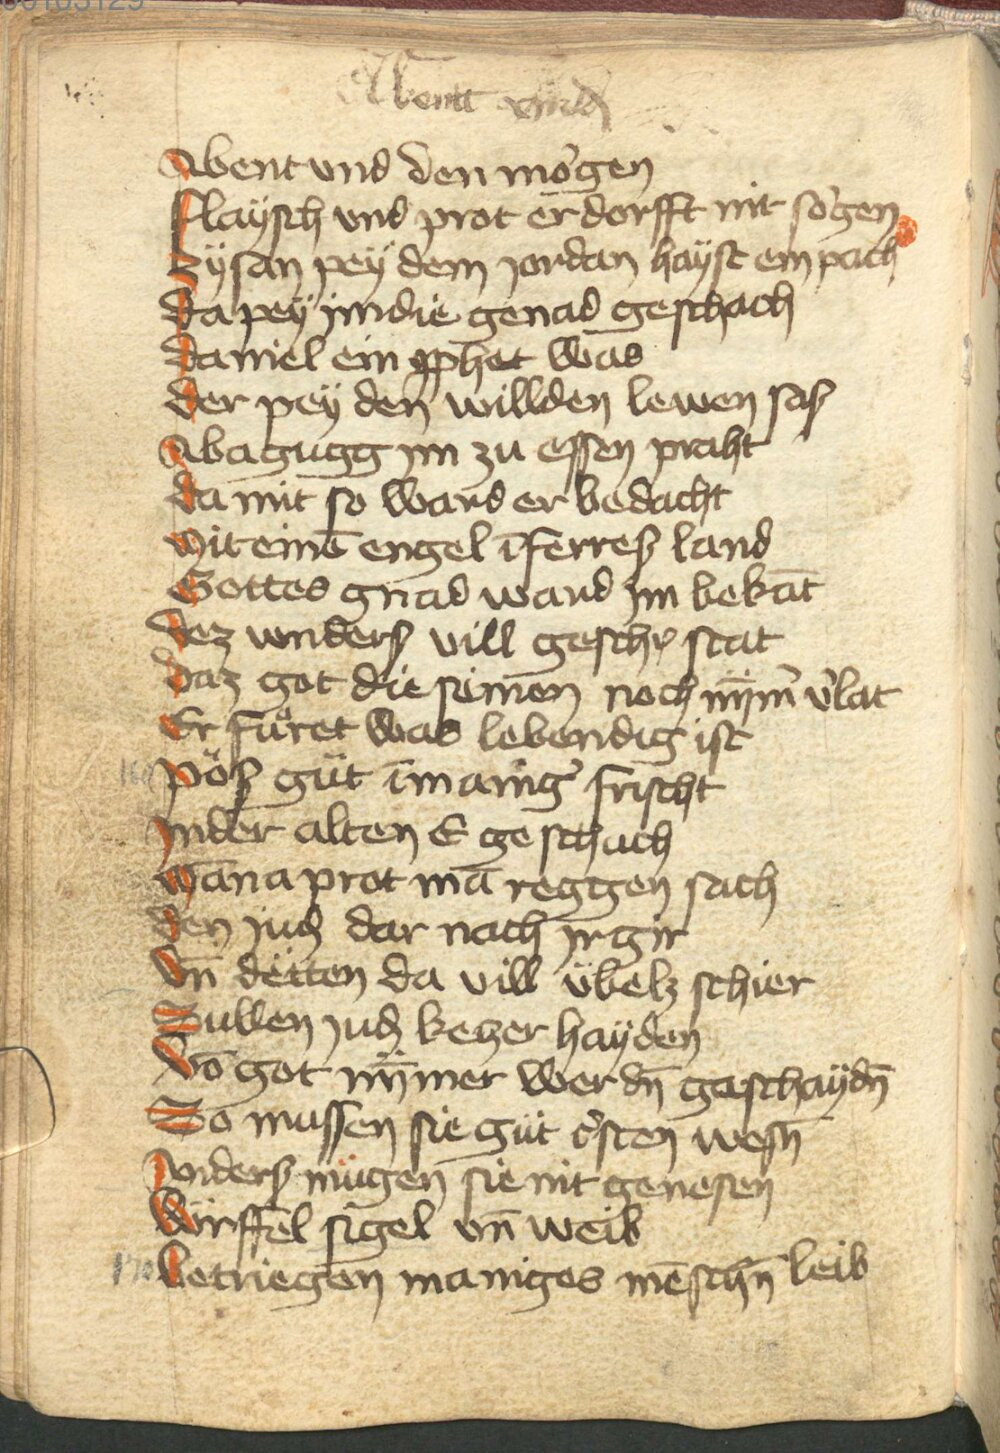 Abentt vnd
Abent vnd den mo᷑gen
flaÿsch vnd prot er dorfft nit so᷑gen
Zÿsan peÿ dem jordan haÿst ein pach
da peÿ jm die genad geschach
daniel ein ꝓphet was
der peÿ den willden lewen saß
Abagugg jm zu essen praht
da mit so ward er bedacht
Mit eimē engel ī ferreß land
Gottes gnad ward jm bekāt
dez wnderß vill geschr̛ stat
daz got die seinen noch nÿm̄ v᷑lat
Er fu̎ret was lebendig ist
Pöß gu̎t ī manig᷑ frischt
In der alten E geschach
Māna prot mā reggen sach
den judꝭ dar nach jr gir
vn̄ detten da vill übelz schier
Sullen judꝭ ketzer haÿden
vō got nÿmmer werdn̄ geschaÿdn̄
So mussen sie gu̎t c᷑sten wesn̄
Anderß mügen sie nit genesen
Wirffel sigel vn̄ weib
betriegen maniges mēschn̄ leib
170